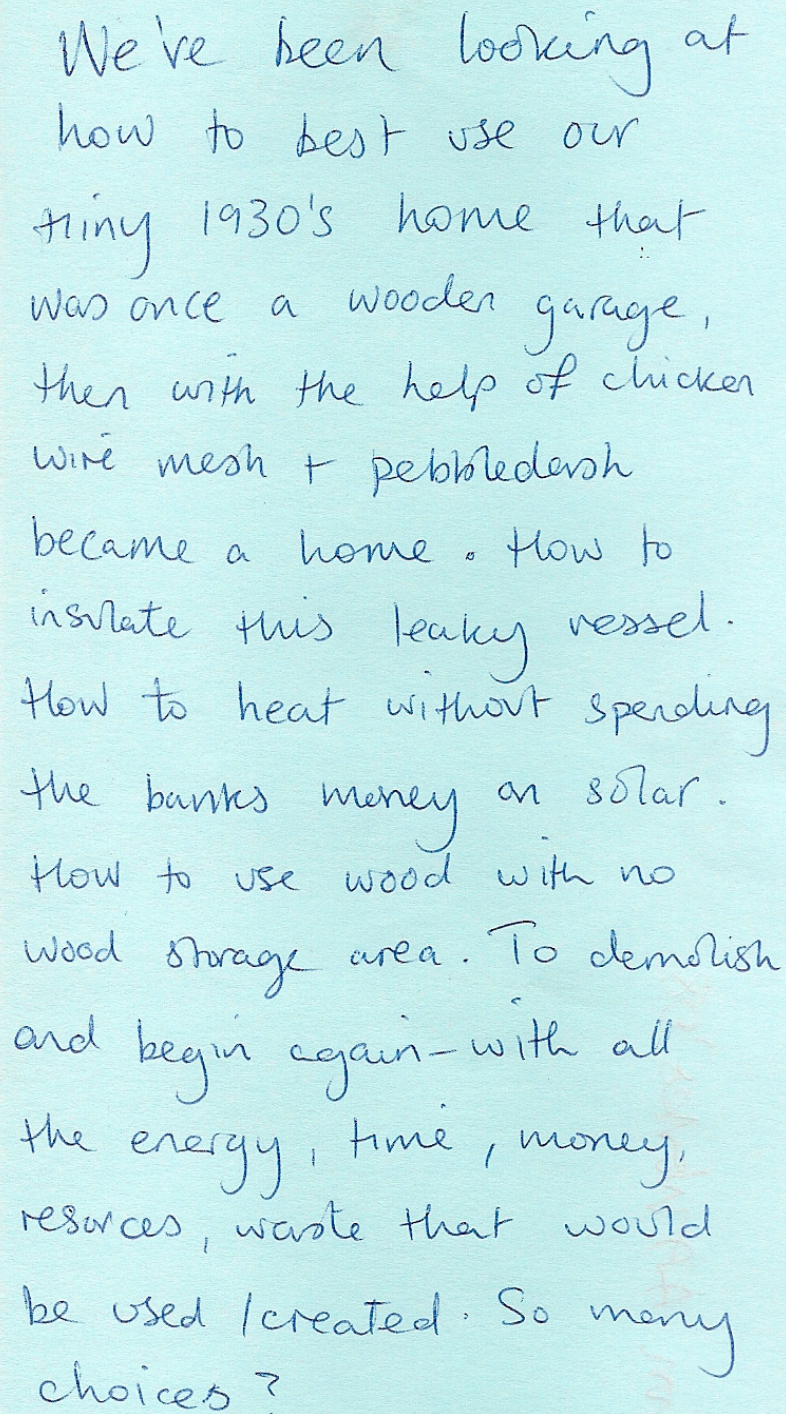 We've been looking at
how to best use our
tiny 1930's home that
was once a wooden garage,
then with the help of chicken
wire mesh + pebbledash
became a home. How to
insulate this leaky vessel.
How to heat without spending
the banks money on solar.
How to use wood with no
wood storage area. To demolish
and begin again - with all
the energy, time, money,
resorces, waste that would
be used / created. So many
choices?